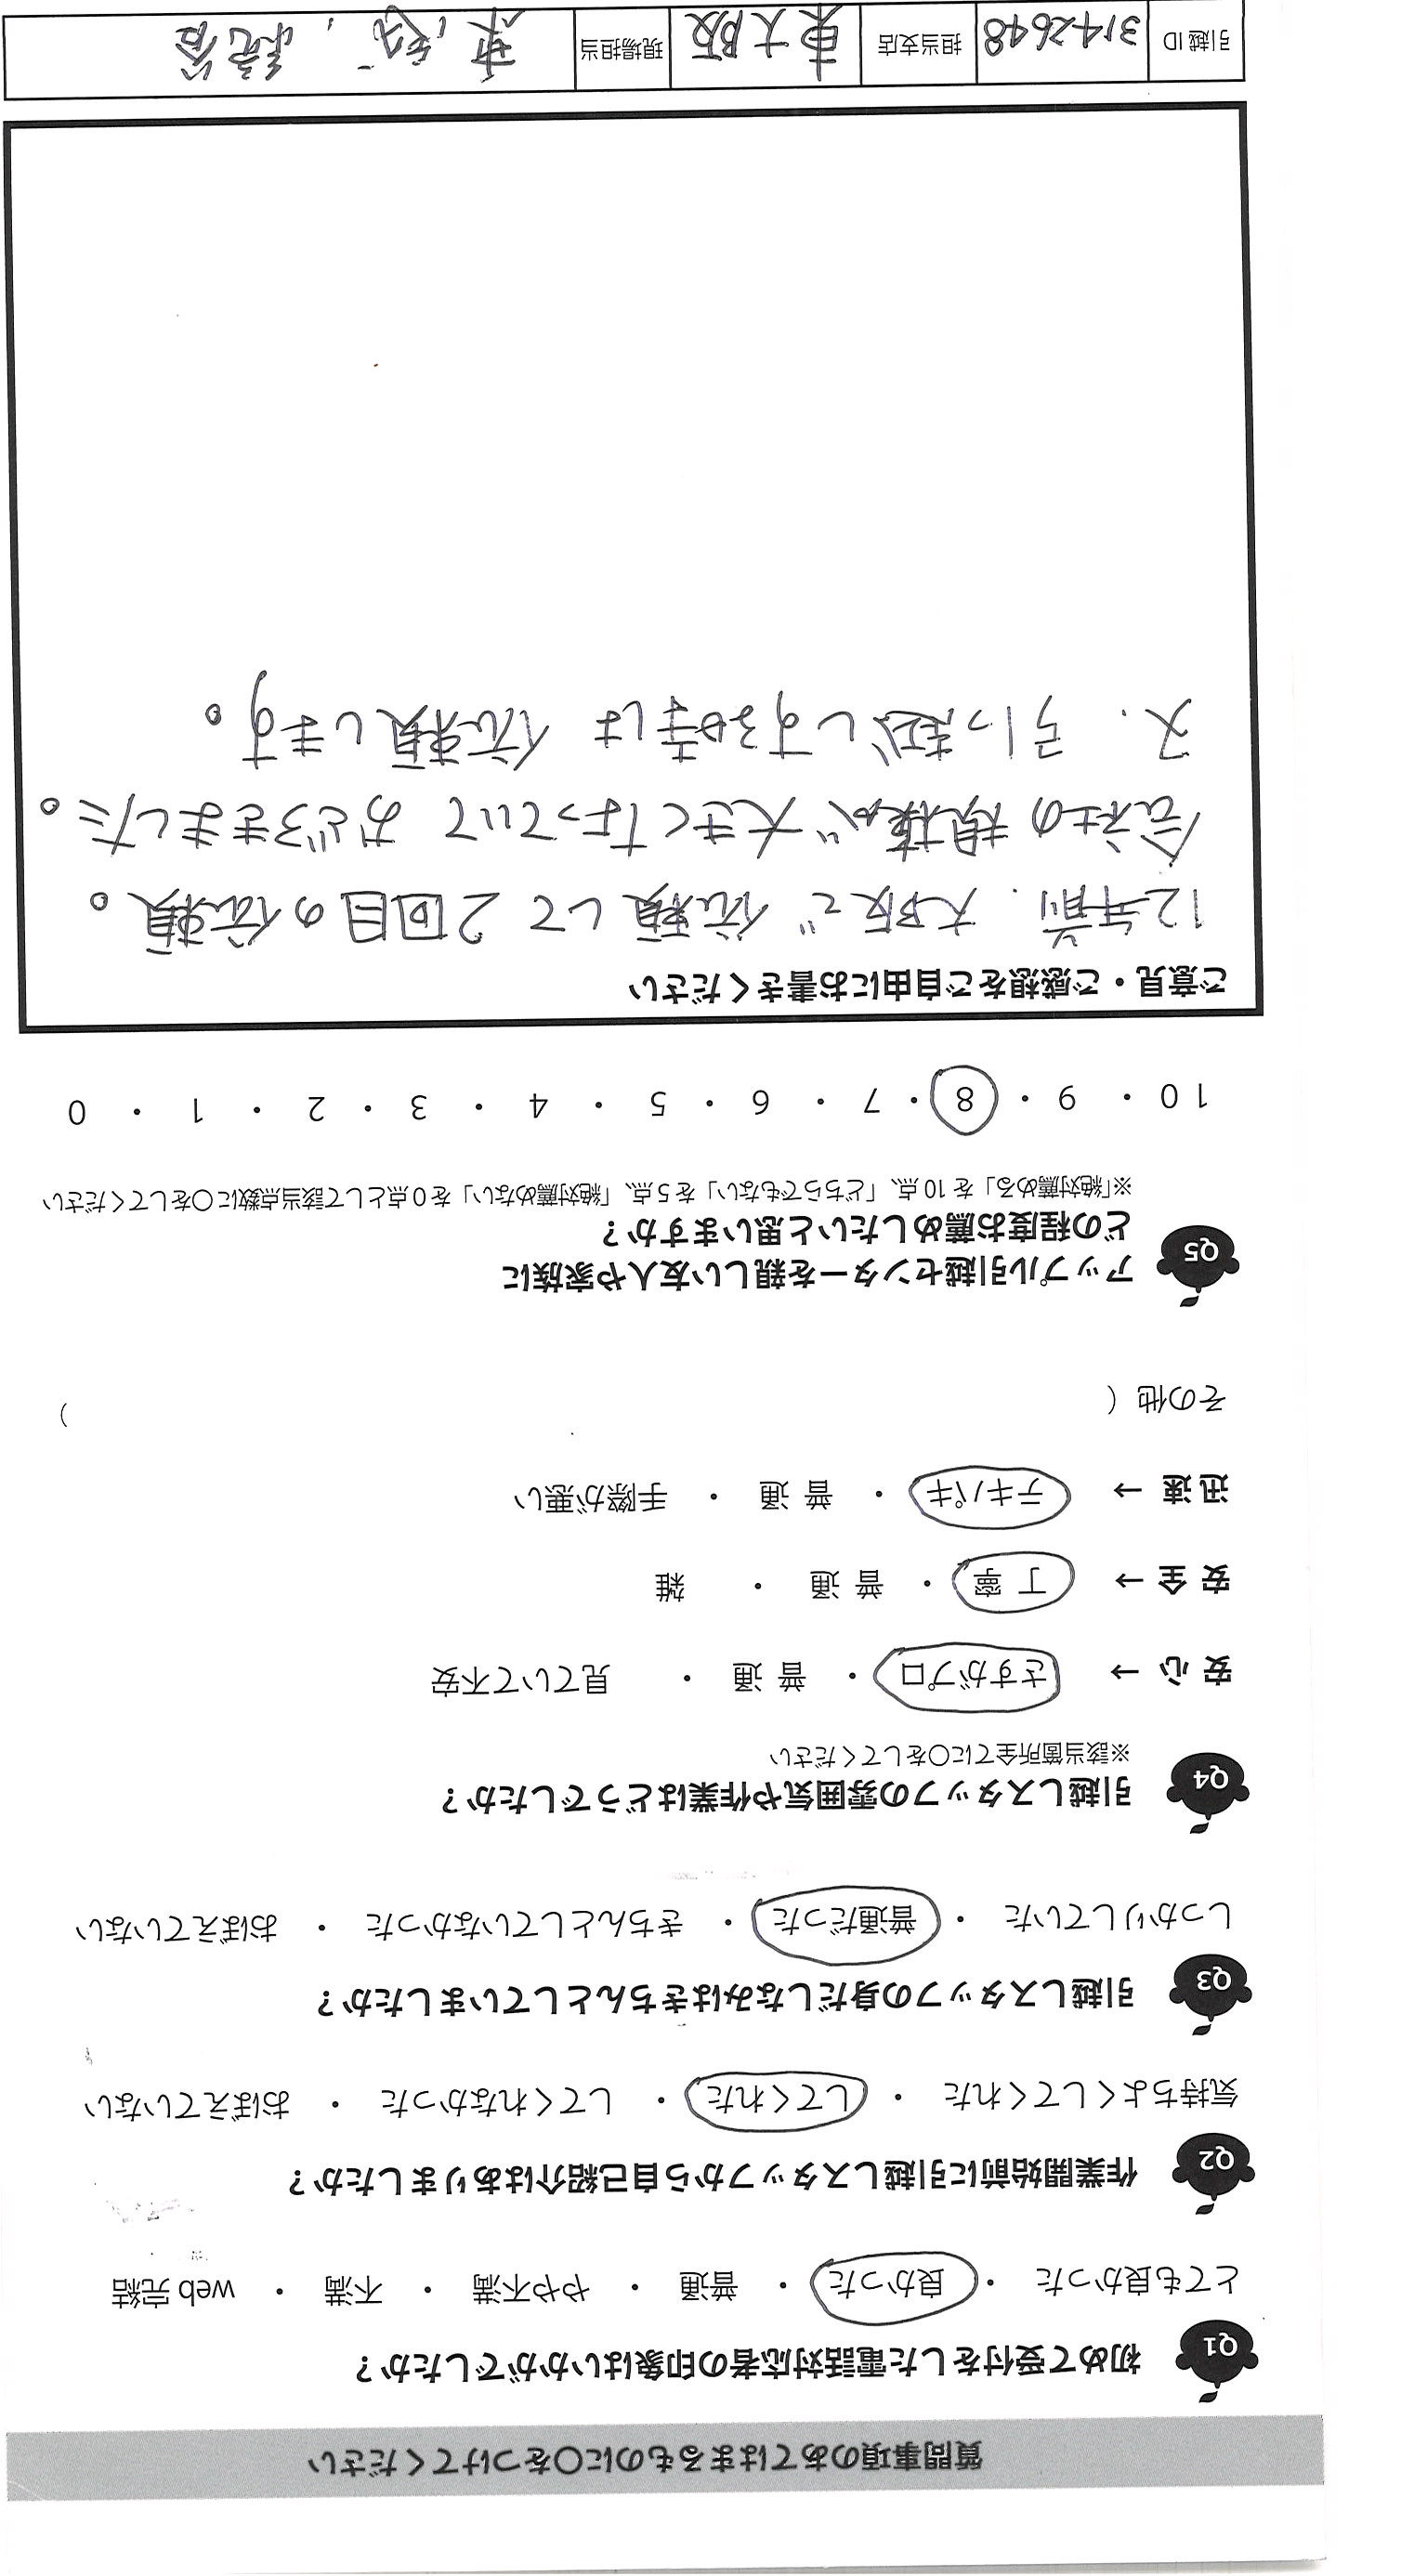 質問事項のあてはまるものに○をつけてください
Q1 初めて受付をした電話対応者の印象はいかがでしたか？
とても良かった ・ 良かった ・ 普通 ・ やや不満 ・ 不満 ・ web 完結
Q2 作業開始前に引越しスタッフから自己紹介はありましたか？
気持ちよくしてくれた ・ してくれた ・ してくれなかった ・ おぼえていない
Q3 引越しスタッフの身だしなみはきちんとしていましたか？
しっかりしていた ・ 普通だった ・ きちんとしていなかった ・ おぼえていない
Q4 引越しスタッフの雰囲気や作業はどうでしたか？
※該当箇所全てに○をしてください
安 心 → さすがプロ ・ 普 通 ・ 見ていて不安
安 全 → 丁 寧 ・ 普 通 ・ 雑
迅 速 → テキパキ ・ 普 通 ・ 手際が悪い
その他（ ）
Q5 アップル引越センターを親しい友人や家族に
どの程度お薦めしたいと思いますか？
※「絶対薦める」を 10 点、「どちらでもない」を 5 点、「絶対薦めない」を 0 点として該当点数に○をしてください
10 ・ 9 ・ 8 ・ 7 ・ 6 ・ 5 ・ 4 ・ 3 ・ 2 ・ 1 ・ 0
ご意見・ご感想をご自由にお書きください
12年前. 大阪で 依頼して 2回目の依頼。
会社の規模が大きくなっていて おどろきました。
又. 引っ越しする時は 依頼します。
引越 ID 3142648 担当支店 東大阪 現場担当